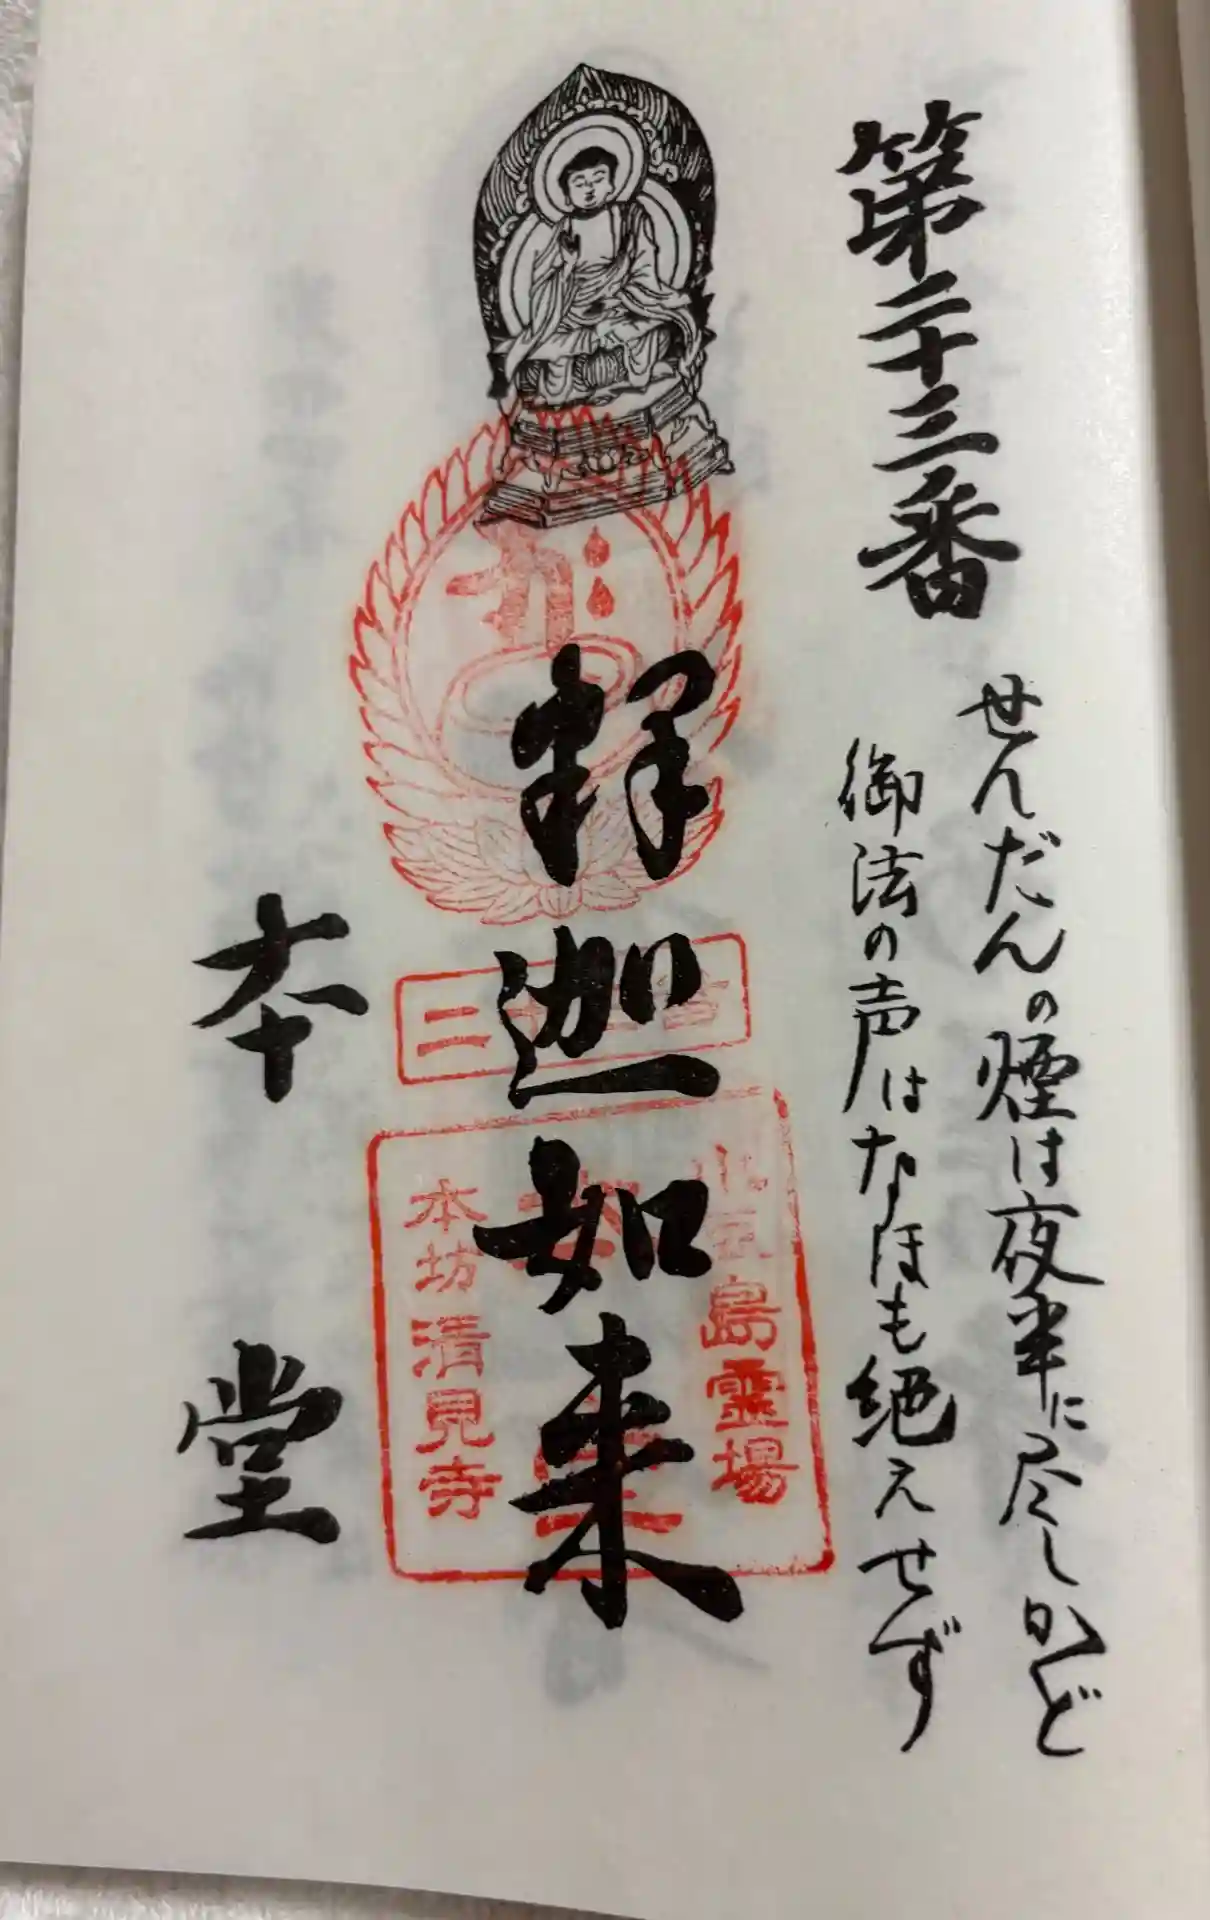 第二十三番
せんだんの煙は夜半に尽しかど
御法の声はなほも絶えせず
釋迦如来
本堂
二
島霊場
本坊清見寺